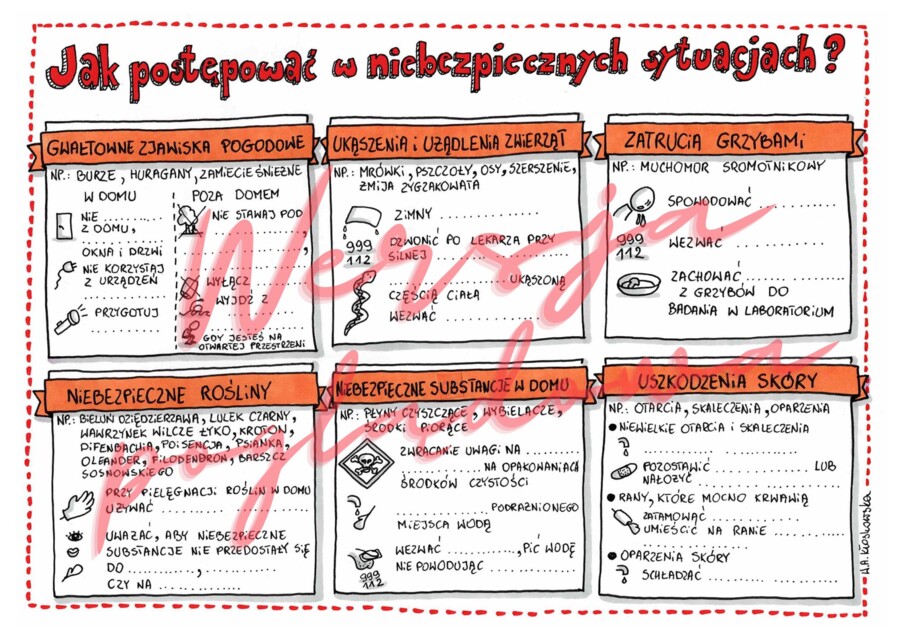 Jak postępować w niebezpiecznych sytuacjach?
GWAŁTOWNE ZJAWISKA POGODOWE
NP.: BURZE, HURAGANY, ZAMIECIE ŚNIEŻNE
W DOMU
NIE ..........
Z DOMU,
..........
OKNA I DRZWI
NIE KORZYSTAJ
Z URZĄDZEŃ
..........
PRZYGOTUJ
..........
POZA DOMEM
NIE STAWAJ POD
..........,
..........,
..........
WYŁĄCZ ..........
WYJDŹ Z ..........
..........
GDY JESTEŚ NA
OTWARTEJ PRZESTRZENI
UKĄSZENIA I UŻĄDLENIA ZWIERZĄT
NP.: MRÓWKI, PSZCZOŁY, OSY, SZERSZENIE,
ŻMIJA ZYGZAKOWATA
ZIMNY ..........
999
112
DZWONIĆ PO LEKARZA PRZY
SILNEJ ..........
.......... UKĄSZONĄ
CZĘŚCIĄ CIAŁA
WEZWAĆ ..........
ZATRUCIA GRZYBAMI
NP.: MUCHOMOR SROMOTNIKOWY
SPOWODOWAĆ ..........
999
112
WEZWAĆ ..........
ZACHOWAĆ ..........
Z GRZYBÓW DO
BADANIA W LABORATORIUM
NIEBEZPIECZNE ROŚLINY
NP.: BIELUŃ DZIĘDZIERZAWA, LULEK CZARNY,
WAWRZYNEK WILCZE ŁYKO, KROTON,
DIFENBACHIA, POISENCJA, PSIANKA,
OLEANDER, FILODENDRON, BARSZCZ
SOSNOWSKIEGO
PRZY PIELĘGNACJI ROŚLIN W DOMU
UŻYWAĆ ..........
UWAŻAĆ, ABY NIEBEZPIECZNE
SUBSTANCJE NIE PRZEDOSTAŁY SIĘ
DO .........., ..........
CZY NA ..........
NIEBEZPIECZNE SUBSTANCJE W DOMU
NP.: PŁYNY CZYSZCZĄCE, WYBIELACZE,
ŚRODKI PIORĄCE
ZWRACANIE UWAGI NA ..........
.......... NA OPAKOWANIACH
ŚRODKÓW CZYSTOŚCI
.......... PODRAŻNIONEGO
MIEJSCA WODĄ
WEZWAĆ .........., PIĆ WODĘ
NIE POWODUJĄC ..........
999
112
USZKODZENIA SKÓRY
NP.: OTARCIA, SKALECZENIA, OPARZENIA
● NIEWIELKIE OTARCIA I SKALECZENIA
..........
POZOSTAWIĆ .......... LUB
NAŁOŻYĆ ..........
● RANY, KTÓRE MOCNO KRWAWIĄ
ZATAMOWAĆ ..........
UMIEŚCIĆ NA RANIE ..........
..........
● OPARZENIA SKÓRY
SCHŁADZAĆ ..........
Wersja
poglądowa